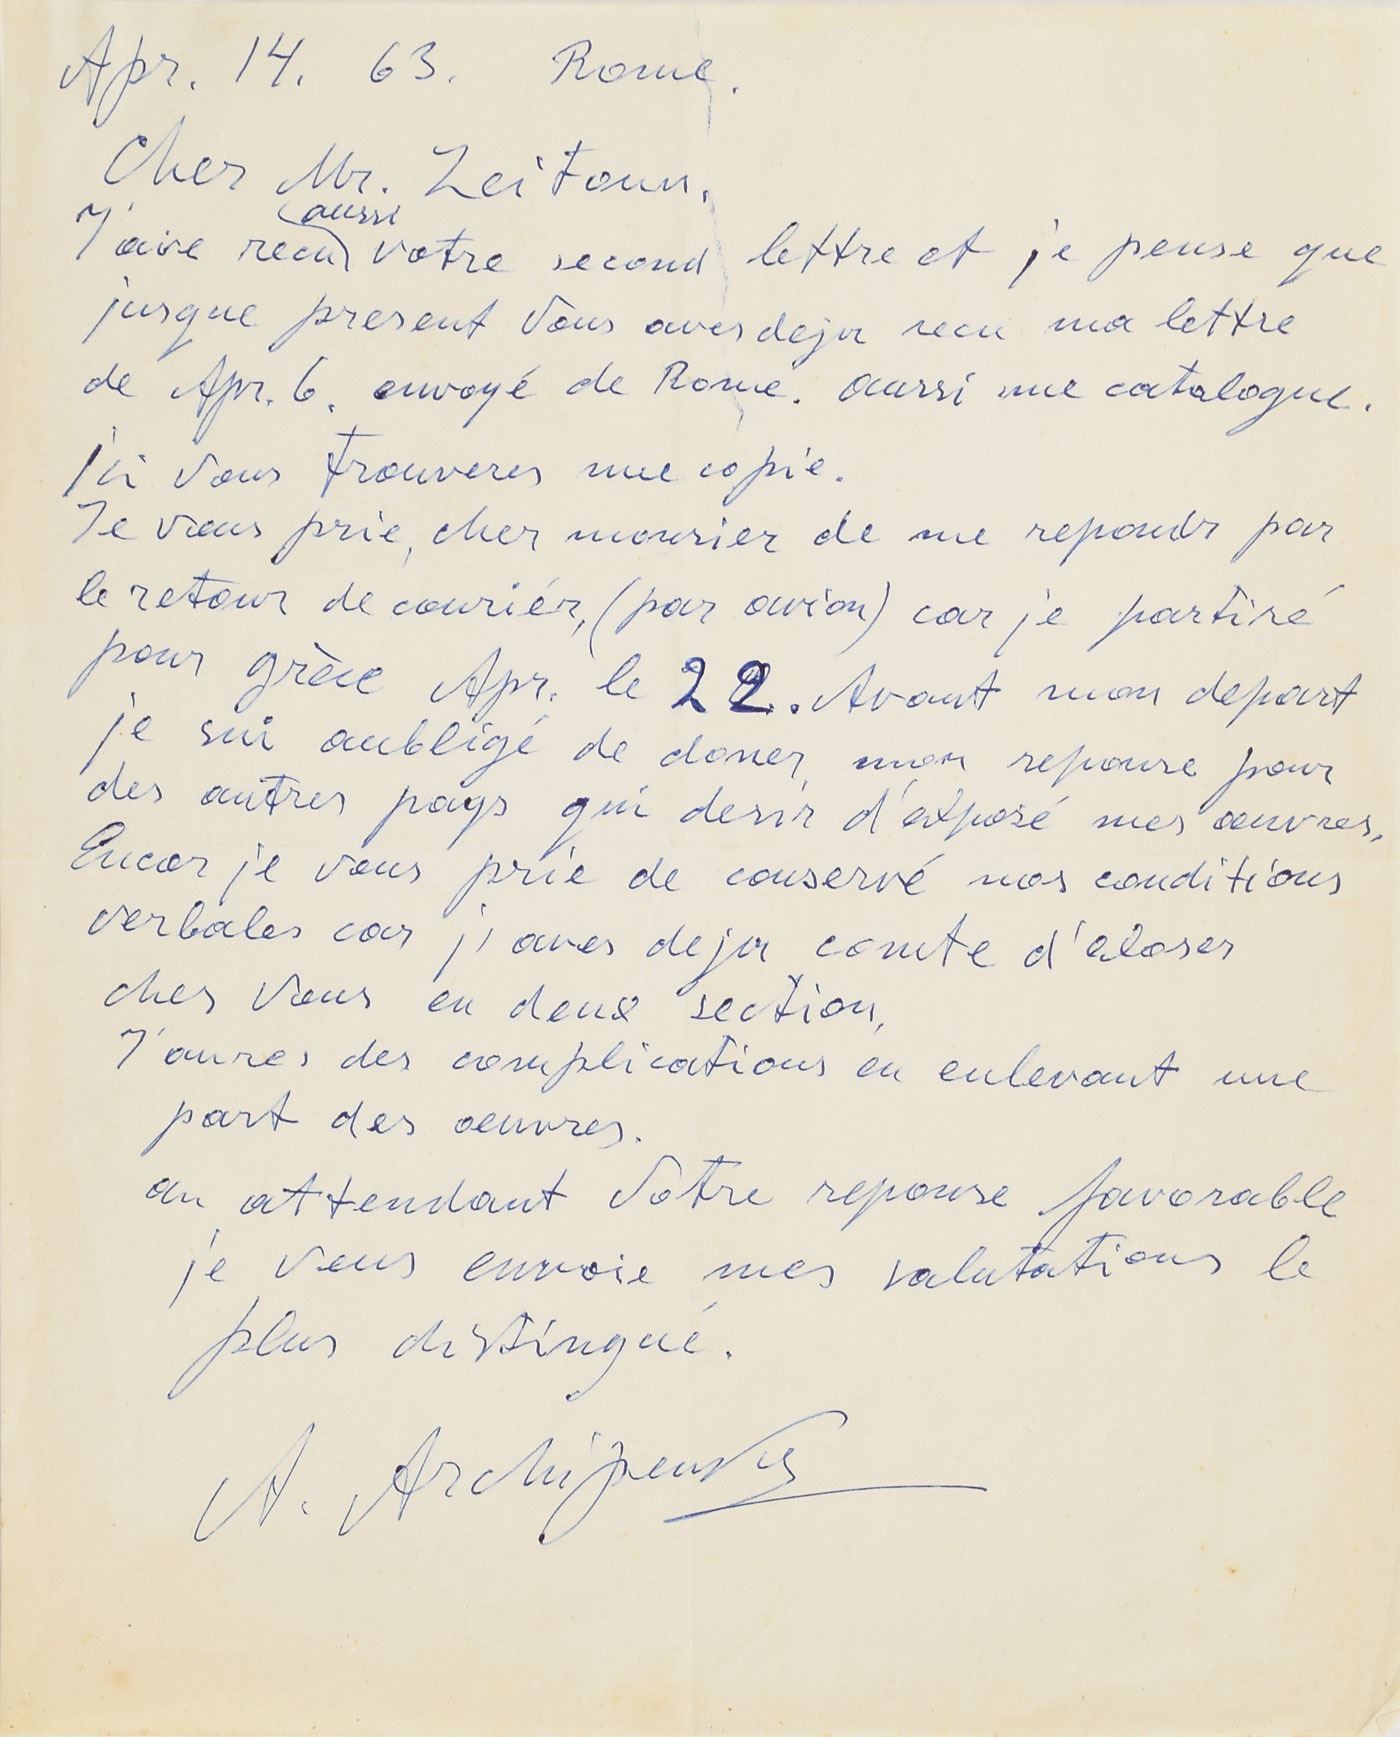 Apr. 14. 63. Rome.
Cher Mr. Zeitoun.
aussi
J'aie recu votre second lettre et je pense que
jusque present vous aves deja recu ma lettre
de Apr. 6. envoyé de Rome. aussi une catalogue.
Ici vous trouveres une copie.
Je vous prie, cher monsier de me repondr par
le retour de couriér, (par avion) car je partiré
pour grèce Apr. le 22. Avant mon depart
je sui aubligé de doner mon reponse pour
des autres pays qui desir d'exposé mes oeuvres.
Encor je vous prie de conservé nos conditions
verbales car j'aves deja comte d'exoser
ches vous en deux section.
J'aures des complications en enlevant une
part des oeuvres.
an attendant votre reponse favorable
je vous envoie mes salutations le
plus distingué.
A. Archipenko